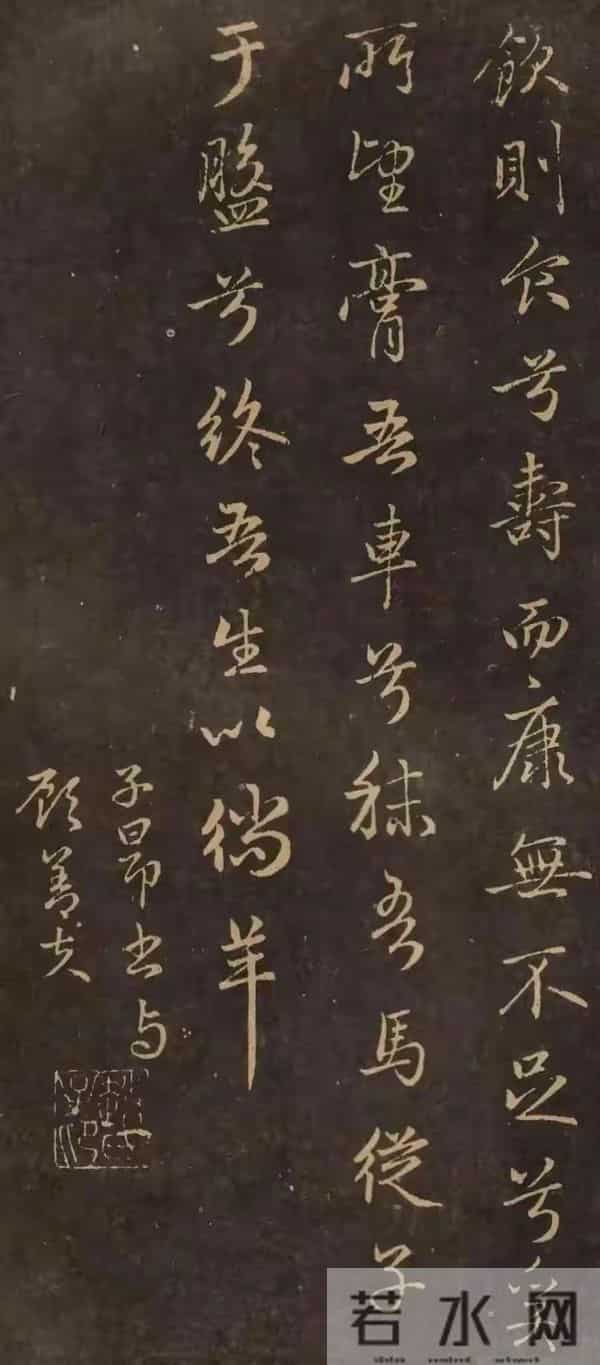 飲則食兮壽而康無不足兮奚
所望膏吾車兮秣吾馬從子
于盤兮終吾生以徜羊
子昂書与
顧善夫
若水网